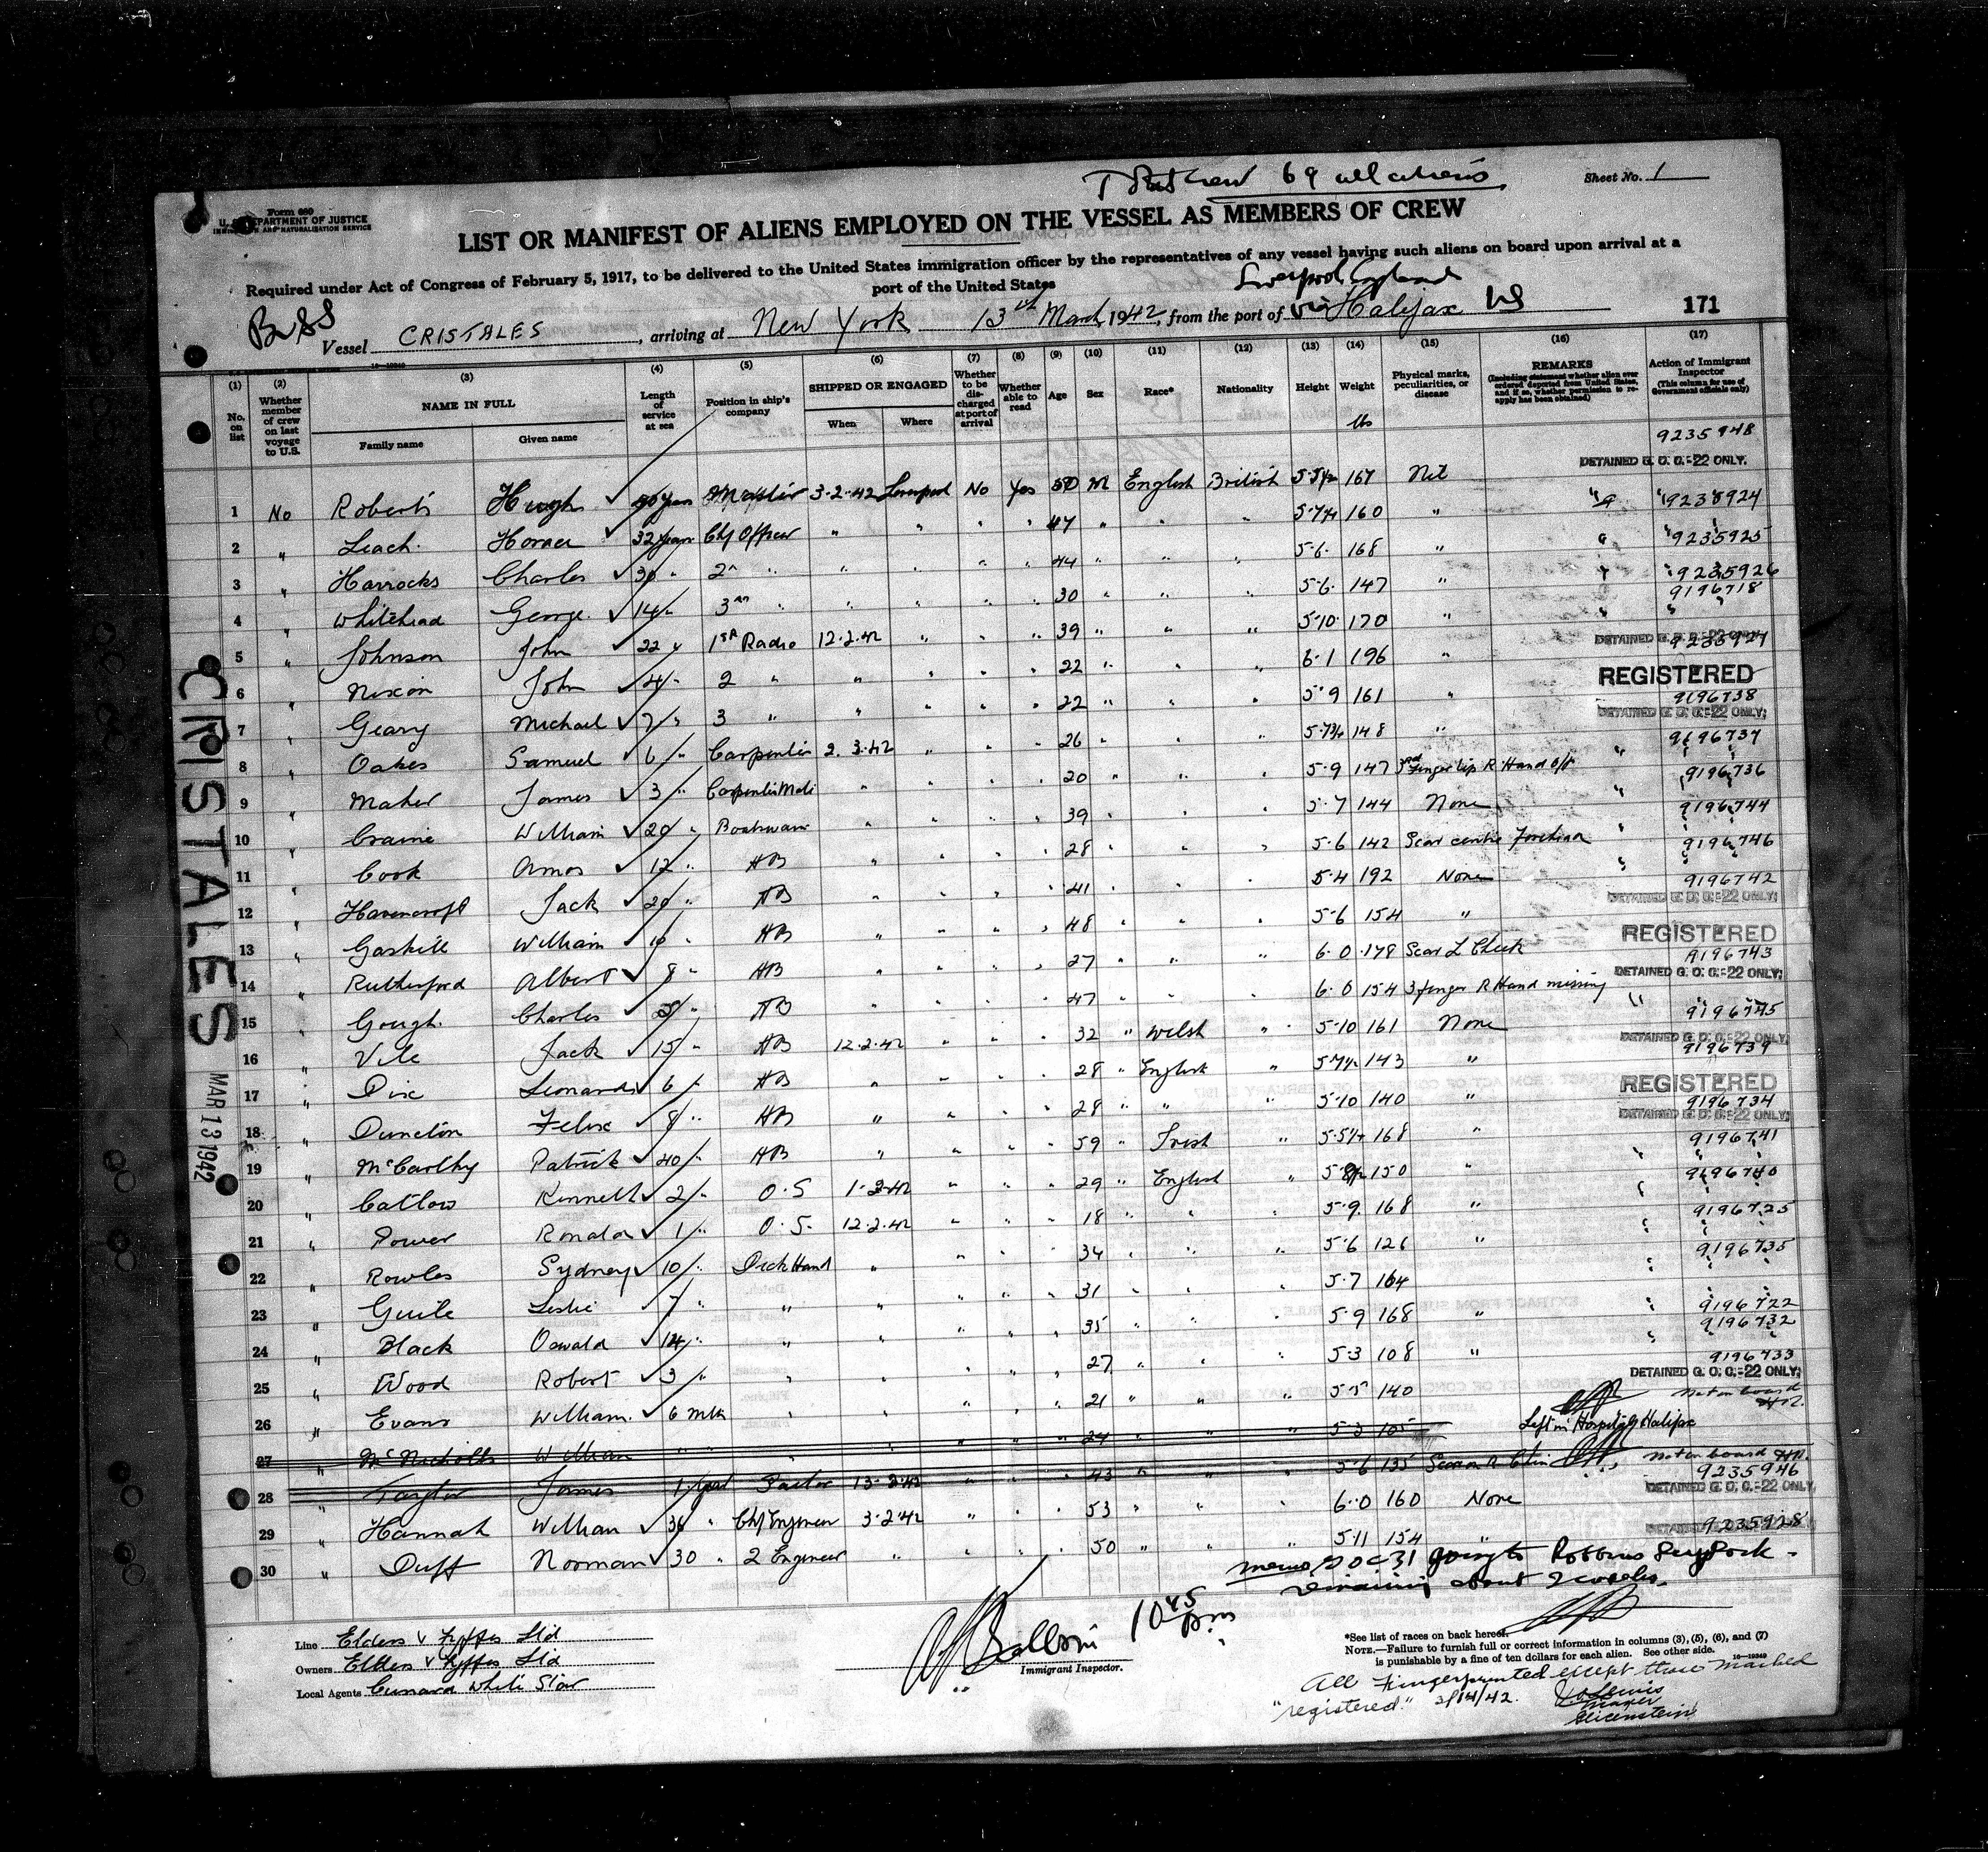 69 all aliens
Sheet No. 1
Form 680
U. S. DEPARTMENT OF JUSTICE
IMMIGRATION AND NATURALIZATION SERVICE
LIST OR MANIFEST OF ALIENS EMPLOYED ON THE VESSEL AS MEMBERS OF CREW
Required under Act of Congress of February 5, 1917, to be delivered to the United States immigration officer by the representatives of any vessel having such aliens on board upon arrival at a
port of the United States
Liverpool England
Br SS
Vessel CRISTALES, arriving at New York 13th March, 1942, from the port of via Halifax NS
171
(1) (2) (3) (4) (5) (6) (7) (8) (9) (10) (11) (12) (13) (14) (15) (16) (17)
No. on list
Whether member of crew on last voyage to U.S.
NAME IN FULL
Family name
Given name
Length of service at sea
Position in ship's company
SHIPPED OR ENGAGED
When
Where
Whether to be discharged at port of arrival
Whether able to read
Age
Sex
Race*
Nationality
Height
Weight
lbs
Physical marks, peculiarities, or disease
REMARKS
(Including statement whether alien ever ordered deported from United States, and if so, whether permission to reapply has been obtained)
Action of Immigrant Inspector
(This column for use of Government officials only)
9235948
DETAINED G. O. C.-22 ONLY.
1 No Roberts Hugh ✓ Master 3-2-42 Liverpool No Yes 50 M English British 167 Nil
2 " Leach Horace ✓ 32 years Chf Officer " " " " 47 " " " 160 " 9235924
3 " Horrocks Charles ✓ 30 " 2n " " " " " 44 " " " 5-6 168 " 9235925
4 " Whitehead George ✓ 14 " 3rd " " " " " 30 " " " 5-6 147 " 9235926
9196718
5 " Johnson John ✓ 22 " 1st Radio 12-2-42 " " " 39 " " " 5-10 170 "
DETAINED G. O. C.-22 ONLY.
6 " Nixon John ✓ 4 " 2 " " " " " 22 " " " 6-1 196 "
REGISTERED
9196738
7 " Geary Michael ✓ 7 " 3 " " " " " 22 " " " 5-9 161 "
DETAINED G. O. C.-22 ONLY;
8 " Oakes Samuel ✓ 6 " Carpenter 2-3-42 " " " 26 " " " 148 " 9196737
9 " Maher James ✓ 3 " Carpenters Mate " " " " 20 " " " 5-9 147 3rd Finger tip R Hand off 9196736
10 " Craine William ✓ 20 " Boatswain " " " " 39 " " " 5-7 144 None 9196744
11 " Cook Amos ✓ 12 " AB " " " " 28 " " " 5-6 142 Scar centre Forehead 9196746
12 " Havencroft Jack ✓ 20 " AB " " " " 41 " " " 5-4 192 None 9196742
DETAINED G. O. C.-22 ONLY;
13 " Gaskill William ✓ " AB " " " " 48 " " " 5-6 154 "
REGISTERED
9196743
14 " Rutherford Albert ✓ 8 " AB " " " " 27 " " " 6-0 178 Scar L Cheek
DETAINED G. O. C.-22 ONLY;
15 " Gough Charles ✓ " AB " " " " 47 " " " 6-0 154 3 finger R Hand missing 9196745
16 " Vile Jack ✓ 15 " AB 12-2-42 " " " 32 " Welsh " 5-10 161 None
DETAINED G. O. C.-22 ONLY;
9196739
17 " Dix Leonard ✓ 6 " AB " " " " 28 " English " 143 "
REGISTERED
9196734
18 " Felix ✓ 8 " AB " " " " 28 " " " 5-10 140 "
DETAINED G. O. C.-22 ONLY;
19 " McCarthy Patrick ✓ 40 " AB " " " " 59 " Irish " 168 " 9196741
20 " Catlow Kenneth ✓ 2 " O.S " " " 29 " English " 150 " 9196740
21 " Power Ronald ✓ 1 " O.S. 12-2-42 " " " 18 " " " 5-9 168 " 9196725
22 " Rowles Sydney ✓ 10 " Deck Hand " " " " 34 " " " 5-6 126 " 9196735
23 " Guile Leslie ✓ 7 " " " " " " 31 " " " 5-7 164 9196722
24 " Black Oswald ✓ 14 " " " " " " 35 " " " 5-9 168 " 9196732
25 " Wood Robert ✓ 3 " " " " " " 27 " " " 5-3 108 " 9196733
DETAINED G. O. C.-22 ONLY;
26 " Evans William ✓ 6 mth " " " " " 21 " " " 5-5 140 Not on board
27 " McNicholls William " " " " " 24 " " " 5-3 105 Left in Hospital Halifax
28 " Taylor James 1 year 13-2-42 " " " 43 " " " 5-6 135 Scar on R Chin Not on board
9235946
DETAINED G. O. C.-22 ONLY,
29 " Hannah William ✓ 36 " Chf Engineer 3-2-42 " " " 53 " " " 6-0 160 None
9235928
30 " Duff Norman ✓ 30 " 2 Engineer " " " " 50 " " " 5-11 154 "
memo going to Robbins Dry Dock -
remaining about 2 weeks.
CRISTALES
MAR 13 1942
Line Elders & Fyffes Ltd
Owners Elders & Fyffes Ltd
Local Agents Cunard White Star
10 45 am
Immigrant Inspector.
*See list of races on back hereof.
NOTE.—Failure to furnish full or correct information in columns (3), (5), (6), and (7)
is punishable by a fine of ten dollars for each alien. See other side.
All Fingerprinted except those marked
"registered." 3/14/42.